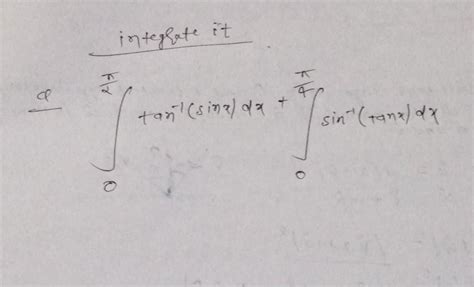 integrate it
Q ∫₀^(π/2) tan⁻¹(sinx) dx + ∫₀^(π/4) sin⁻¹(tanx) dx